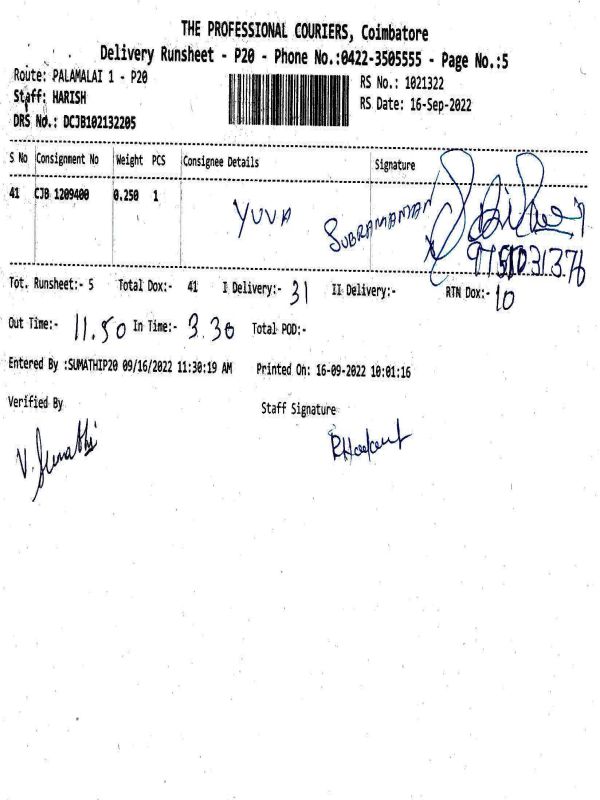 THE PROFESSIONAL COURIERS, Coimbatore
Delivery Runsheet - P20 - Phone No.:0422-3505555 - Page No.:5
Route: PALAMALAI 1 - P20
RS No.: 1021322
Staff: HARISH
RS Date: 16-Sep-2022
DRS No.: DCJB102132205
S No Consignment No Weight PCS Consignee Details Signature
41 CJB 1209400 0.250 1 YUVA SUBRAMANIAN
Tot. Runsheet:- 5 Total Dox:- 41 I Delivery:- 31 II Delivery:- RTN Dox:- 10
Out Time:- 11.50 In Time:- 3.30 Total POD:-
Entered By :SUMATHIP20 09/16/2022 11:30:19 AM Printed On: 16-09-2022 10:01:16
Verified By Staff Signature
V. Sumathi